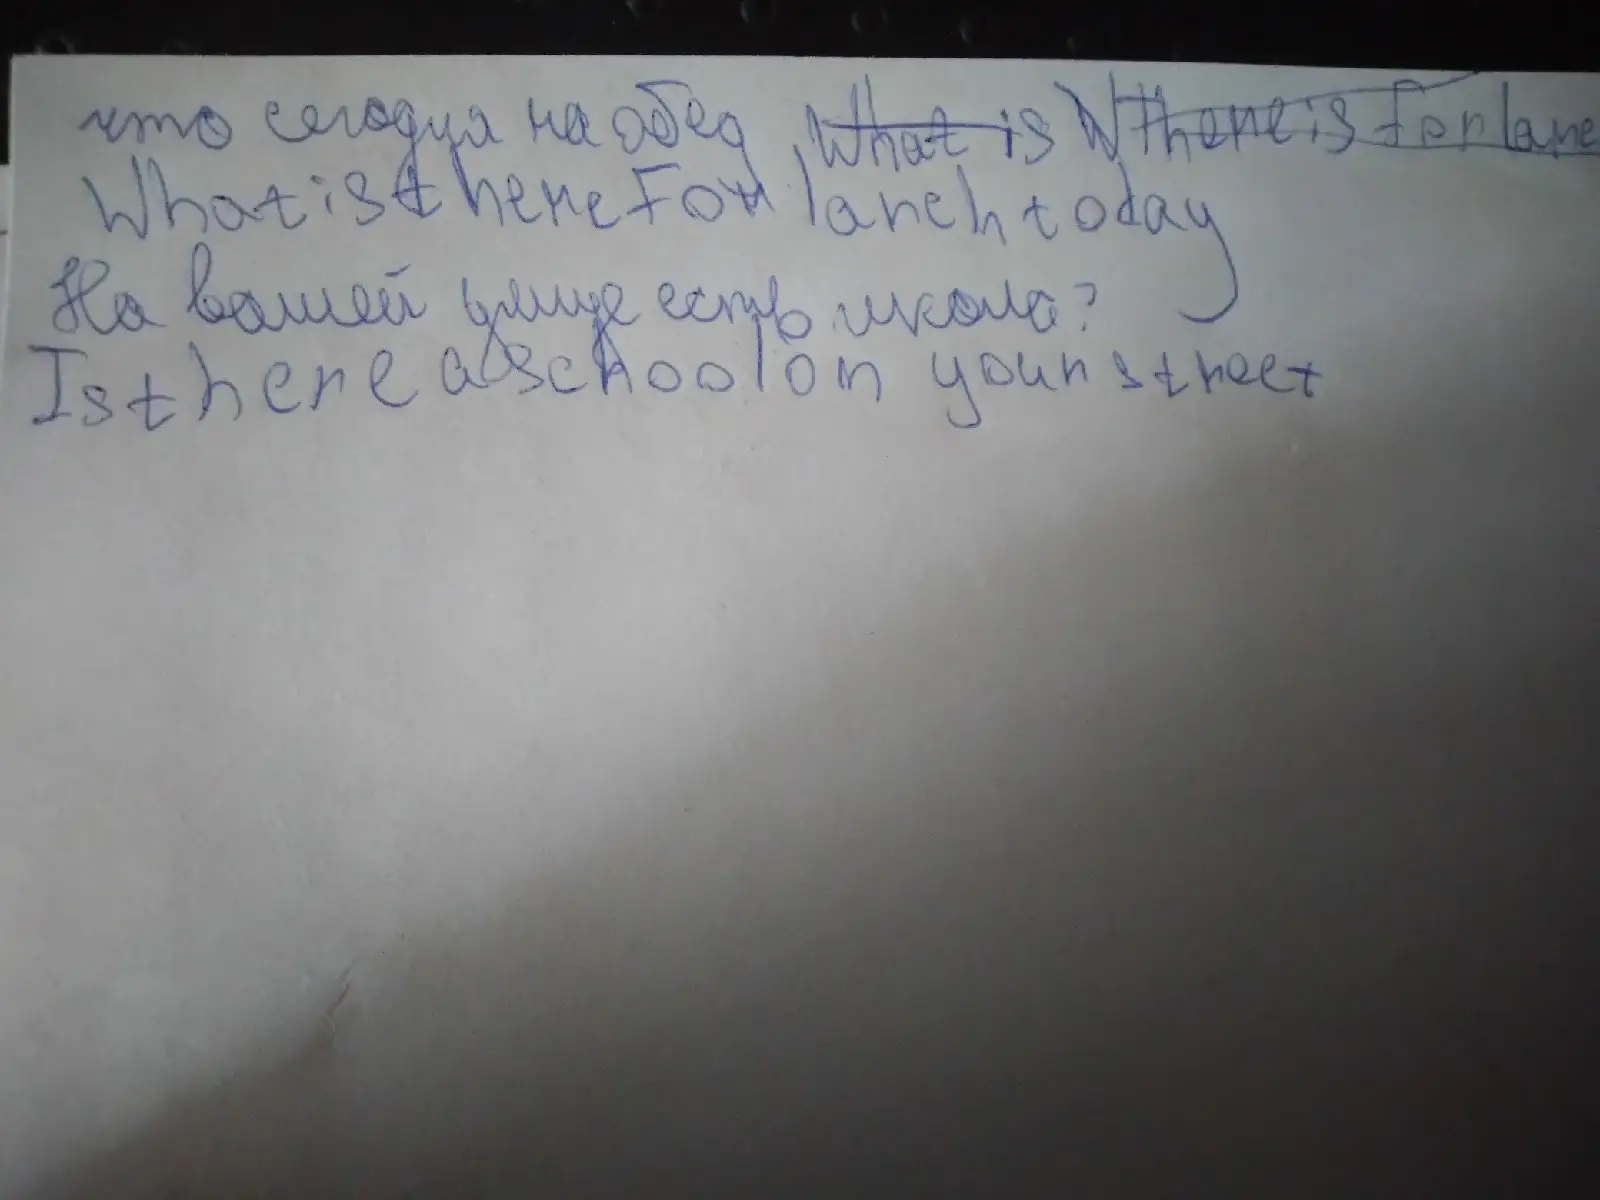 что сегодня на обед What is Wthere is for lane
What is there For lanch today
На вашей улице есть школа?
Is there a school on your street